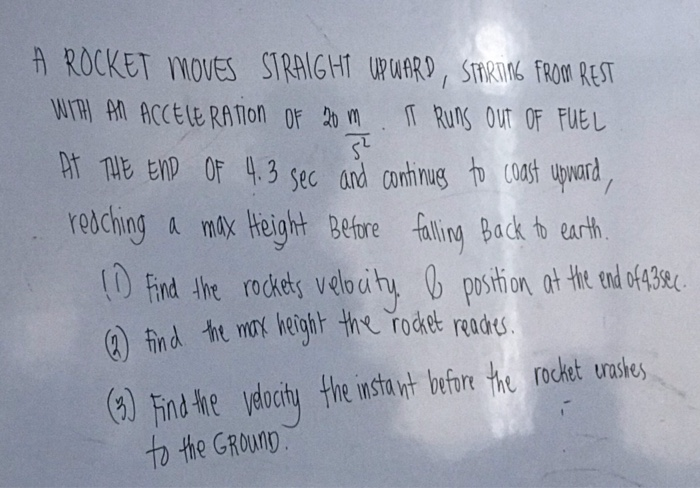 A ROCKET MOVES STRAIGHT UPWARD, STARTING FROM REST
WITH AN ACCELERATION OF 20 m/s². IT RUNS OUT OF FUEL
AT THE END OF 4.3 sec and continues to coast upward,
reaching a max Height Before falling Back to earth.
(1) Find the rockets velocity & position at the end of 4.3sec.
(2) find the max height the rocket reaches.
(3) Find the velocity the instant before the rocket crashes
to the GROUND.